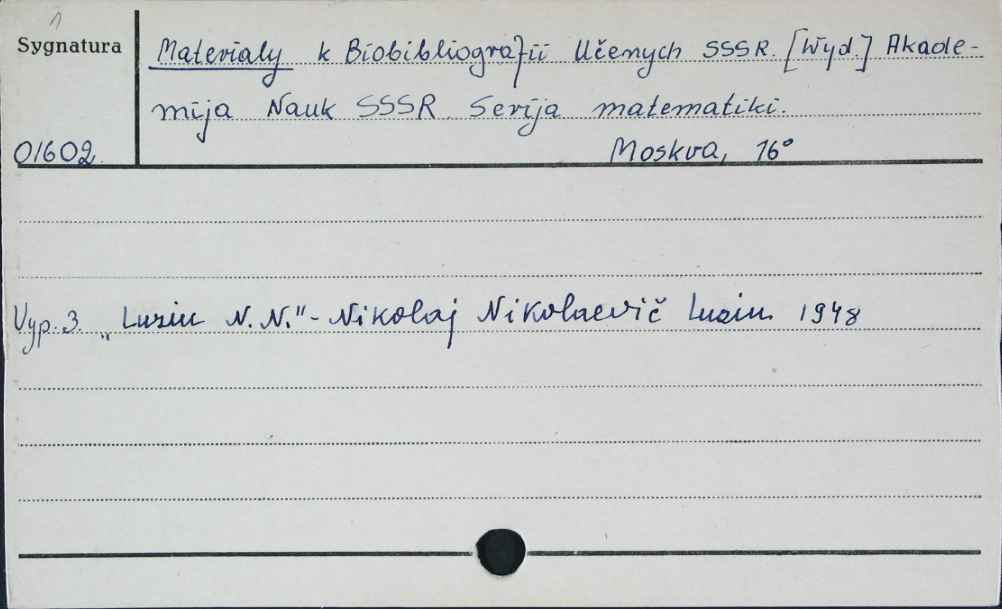 1
Sygnatura
Materialy k Biobibliografii Učenych SSSR. [Wyd.] Akade-
mija Nauk SSSR Serija matematiki.
01602 Moskva, 16°
Vyp. 3. „Luzin N. N." - Nikolaj Nikolaevič Luzin. 1948